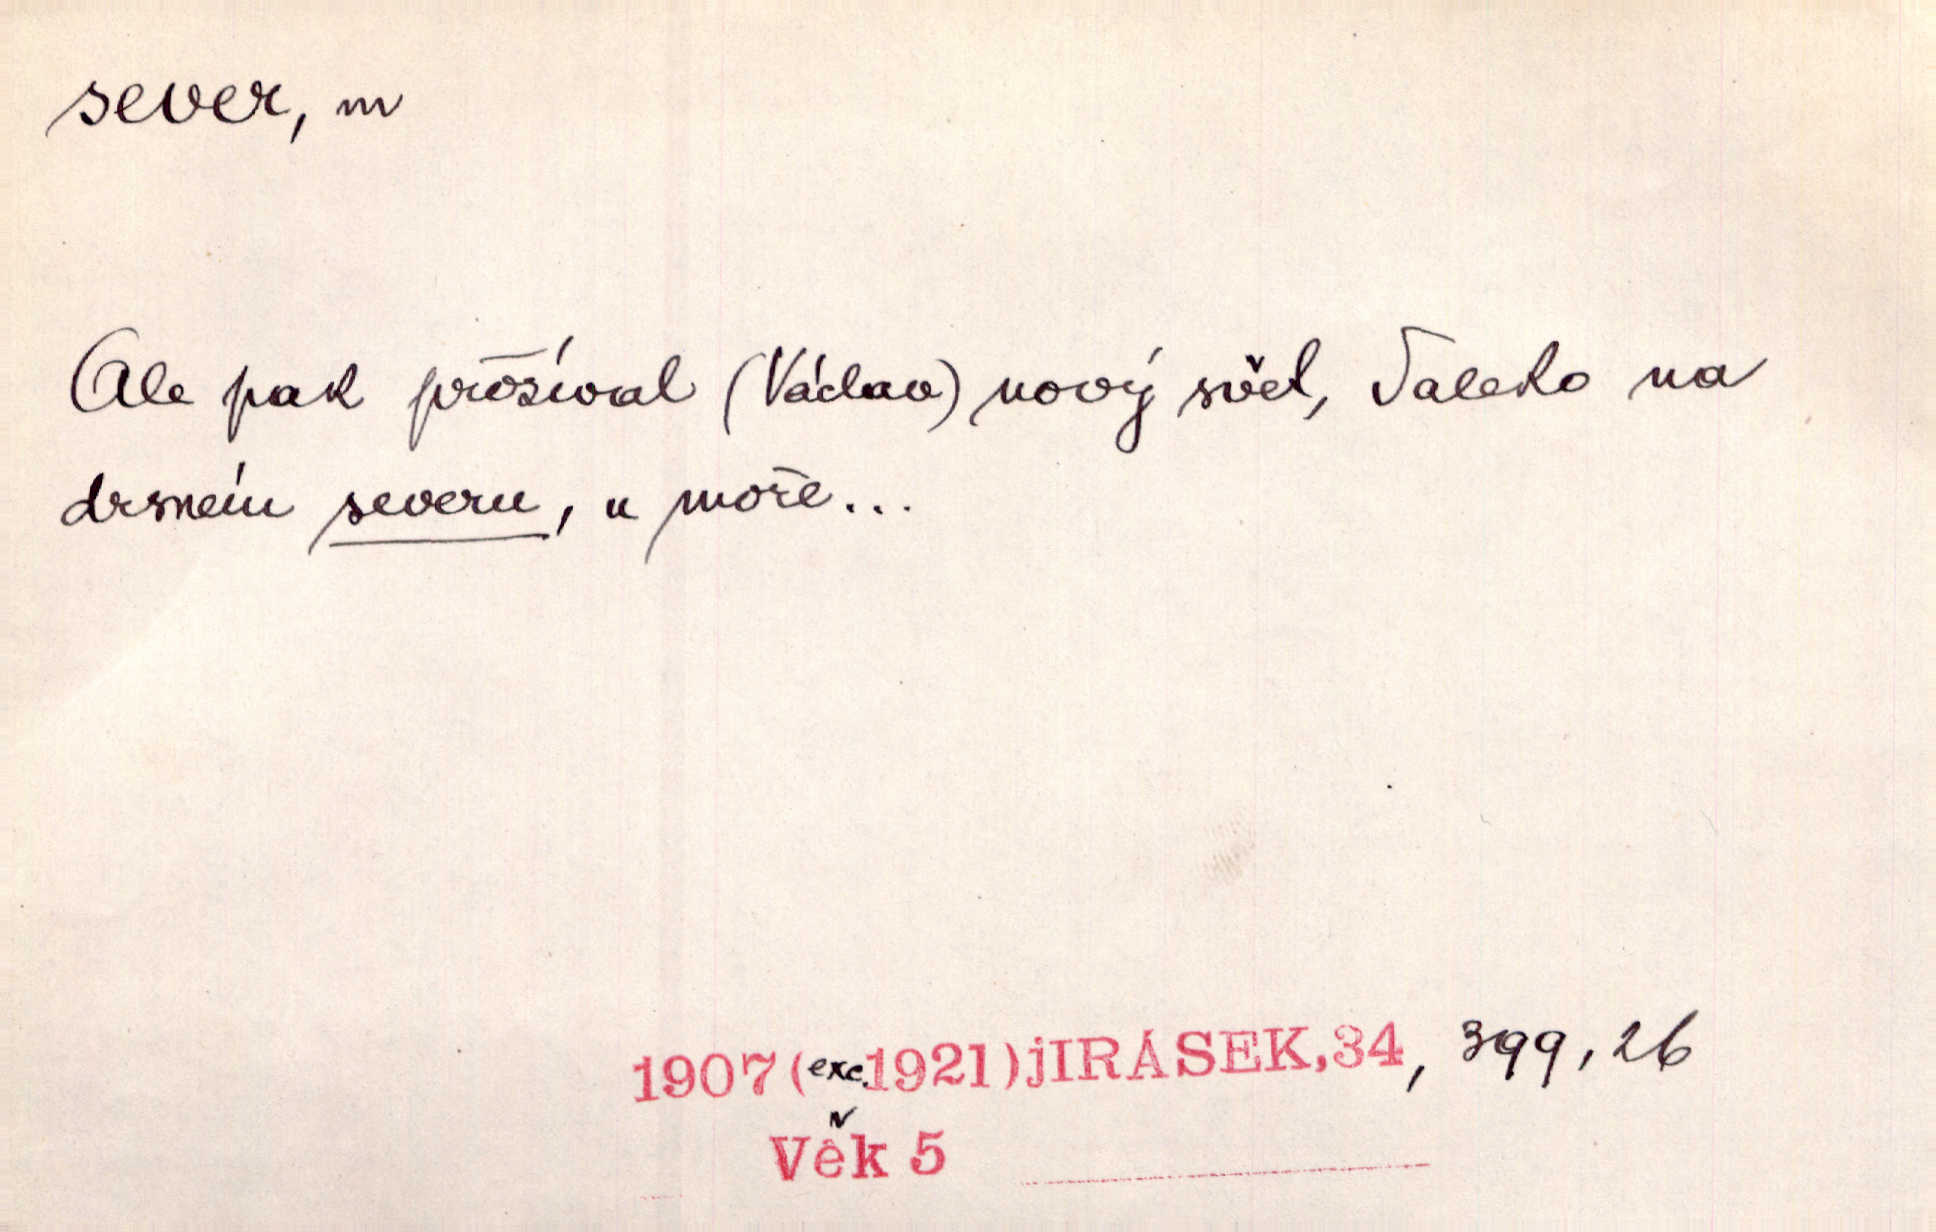 sever, m
Ale pak prožíval (Václav) nový svět, daleko na
drsném severu, u moře...
1907 (exc. 1921) jIRÁSEK, 34, 399, 26
Věk 5